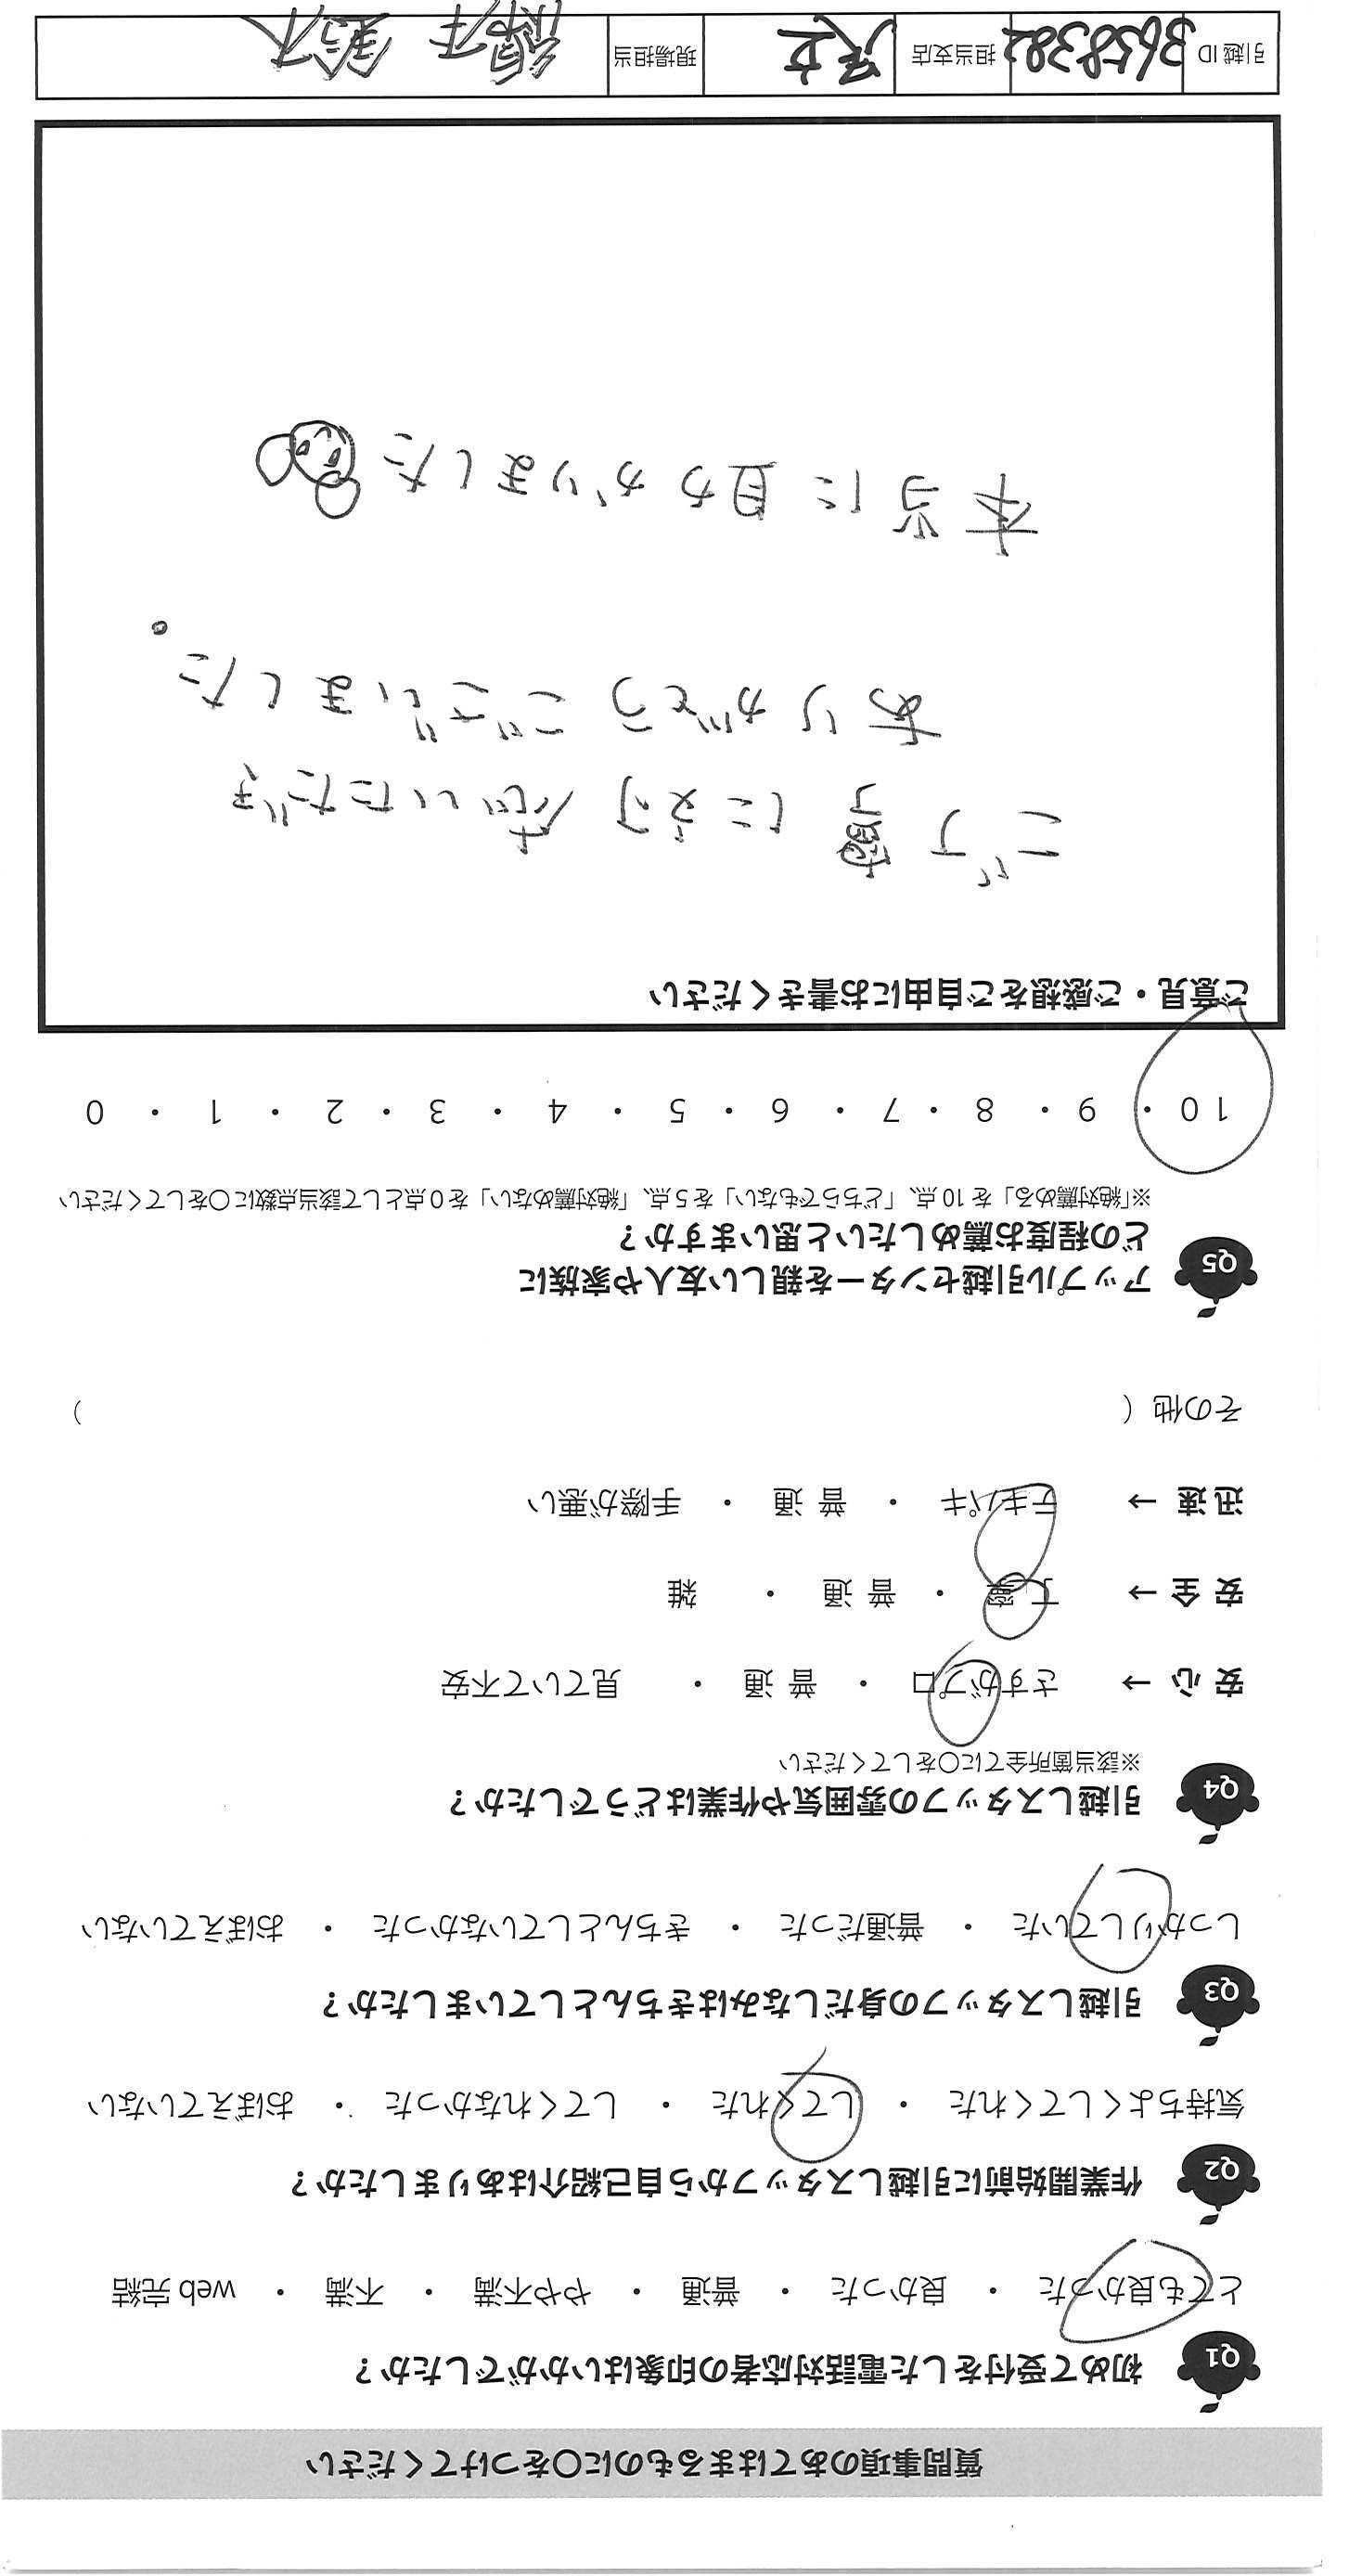 質問事項のあてはまるものに○をつけてください
Q1 初めて受付をした電話対応者の印象はいかがでしたか？
とても良かった ・ 良かった ・ 普通 ・ やや不満 ・ 不満 ・ web 完結
Q2 作業開始前に引越しスタッフから自己紹介はありましたか？
気持ちよくしてくれた ・ してくれた ・ してくれなかった ・ おぼえていない
Q3 引越しスタッフの身だしなみはきちんとしていましたか？
しっかりしていた ・ 普通だった ・ きちんとしていなかった ・ おぼえていない
Q4 引越しスタッフの雰囲気や作業はどうでしたか？
※該当箇所全てに○をしてください
安 心 → さすがプロ ・ 普 通 ・ 見ていて不安
安 全 → 丁 寧 ・ 普 通 ・ 雑
迅 速 → テキパキ ・ 普 通 ・ 手際が悪い
その他（ ）
Q5 アップル引越センターを親しい友人や家族に
どの程度お薦めしたいと思いますか？
※「絶対薦める」を 10 点、「どちらでもない」を 5 点、「絶対薦めない」を 0 点として該当点数に○をしてください
10 ・ 9 ・ 8 ・ 7 ・ 6 ・ 5 ・ 4 ・ 3 ・ 2 ・ 1 ・ 0
ご意見・ご感想をご自由にお書きください
ご丁寧に対応いただき
ありがとうございました。
本当に助かりました
引越 ID 3658382 担当支店 足立 現場担当 鈴木